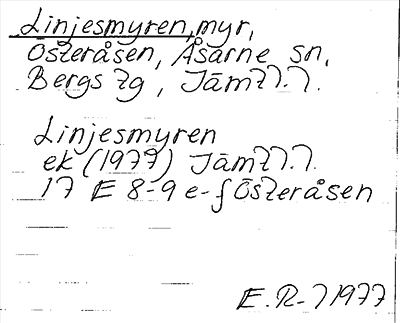 Linjesmyren, myr,
Österåsen, Åsarne sn,
Bergs tg, Jämtl.l.
Linjesmyren
ek (1977) Jämtl.l.
17 E 8-9 e-f Österåsen
E.R-l 1977